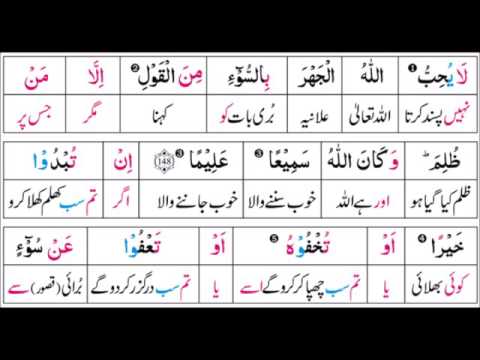 لَا يُحِبُّ ❶ اللّٰهُ الْجَهْرَ بِالسُّوْٓءِ مِنَ الْقَوْلِ ❷ اِلَّا مَنْ
نہیں پسند کرتا اللہ تعالیٰ علانیہ بُری بات کو کہنا مگر جس پر
ظُلِمَ ؕ وَ كَانَ اللّٰهُ سَمِيْعًا ❸ عَلِيْمًا ❸ 148 اِنْ تُبْدُوْا
ظلم کیا گیا ہو اور ہے اللہ خوب سننے والا خوب جاننے والا اگر تم سب کھلم کھلا کرو
خَيْرًا ❹ اَوْ تُخْفُوْهُ ❺ اَوْ تَعْفُوْا عَنْ سُوْٓءٍ
کوئی بھلائی یا تم سب چھپا کر کرو گے اسے یا تم سب درگزر کر دو گے بُرائی (قصور) سے